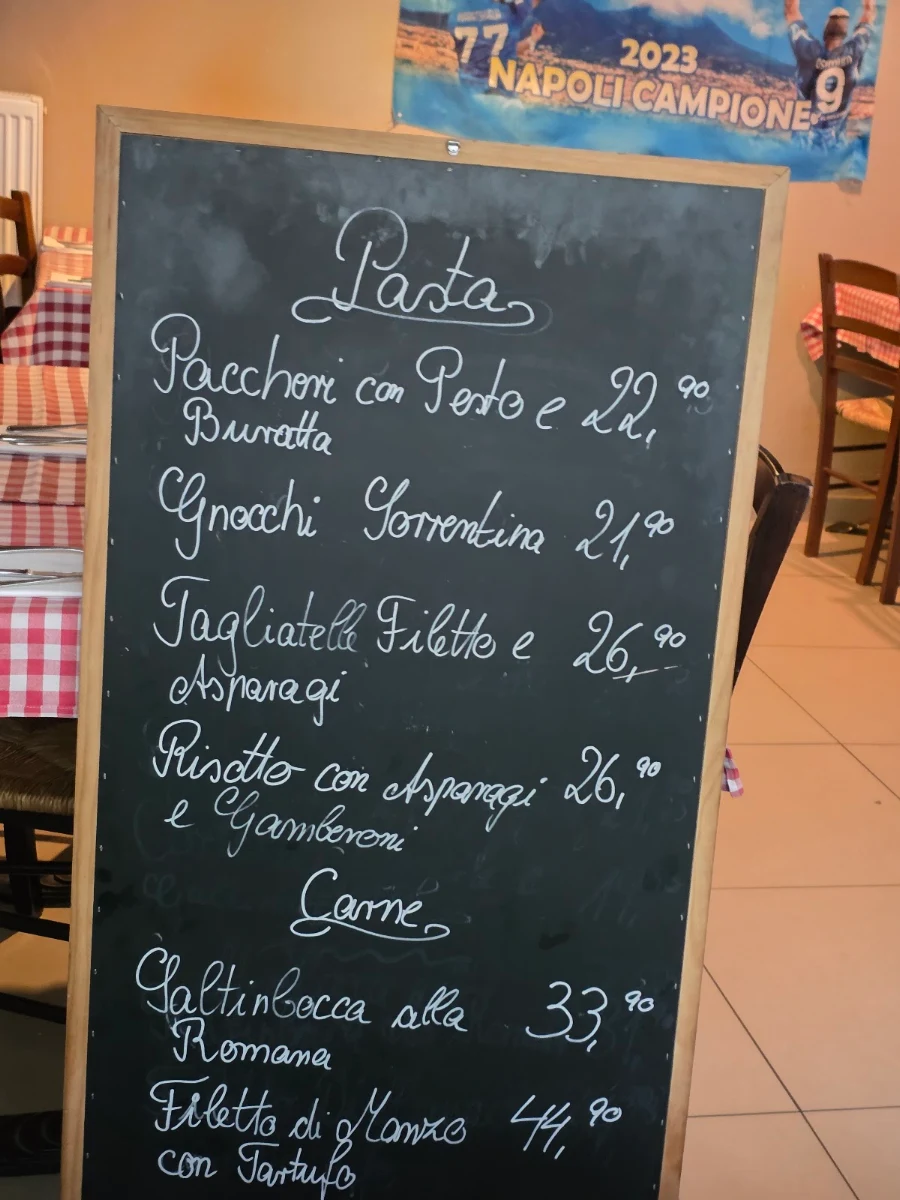 77
2023
NAPOLI CAMPIONE
9
Pasta
Paccheri con Pesto e 22,90
Buratta
Gnocchi Sorrentina 21,90
Tagliatelle Filetto e 26,90
Asparagi
Risotto con Asparagi 26,90
e Gamberoni
Carne
Saltinbocca alla 33,90
Romana
Filetto di Manzo 44,90
con Tartufo